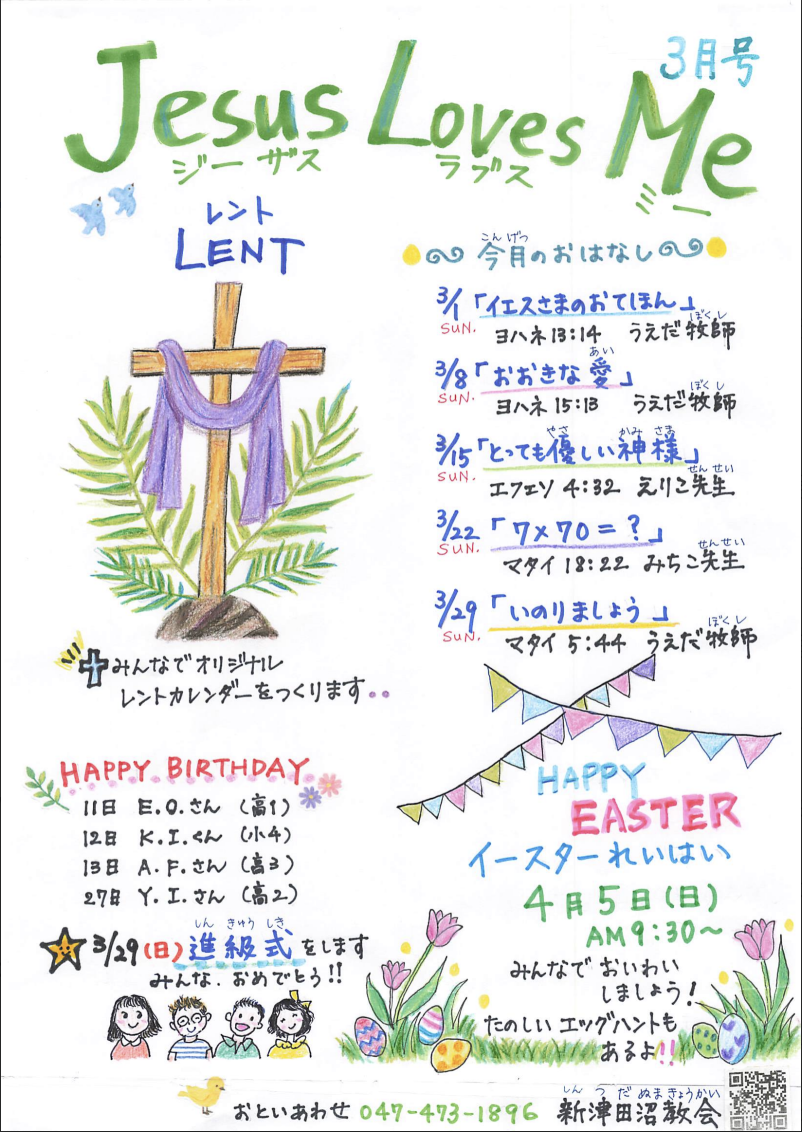 3月号
Jesus Loves Me
ジーザス ラブス ミー
レント
LENT
こんげつ
今月のおはなし
3/1 「イエスさまのおてほん」
SUN.
ぼくし
ヨハネ13:14 うえだ牧師
あい
3/8 「おおきな愛」
SUN.
ぼくし
ヨハネ 15:13 うえだ牧師
やさ かみ さま
3/15 「とっても優しい神様」
SUN.
せんせい
エフェソ 4:32 えりこ先生
3/22 「7×70=?」
SUN.
せんせい
マタイ 18:22 みちこ先生
3/29 「いのりましょう」
SUN.
ぼくし
マタイ 5:44 うえだ牧師
みんなでオリジナル
レントカレンダーをつくります..
HAPPY BIRTHDAY
11日 E.O.さん (高1)
12日 K.I.くん (小4)
13日 A.F.さん (高3)
27日 Y.I.さん (高2)
しん きゅう しき
3/29(日) 進級式をします
みんな.おめでとう!!
HAPPY
EASTER
イースターれいはい
4月5日(日)
AM9:30~
みんなで おいわい
しましょう!
たのしい エッグハントも
あるよ!!
しん つ だ ぬま きょうかい
おといあわせ 047-473-1896 新津田沼教会